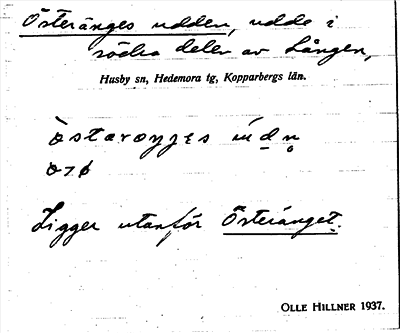 Österänges udden, udde i
södra delen av Lången,
Husby sn, Hedemora tg, Kopparbergs län.
Ligger utanför Österänget.
OLLE HILLNER 1937.